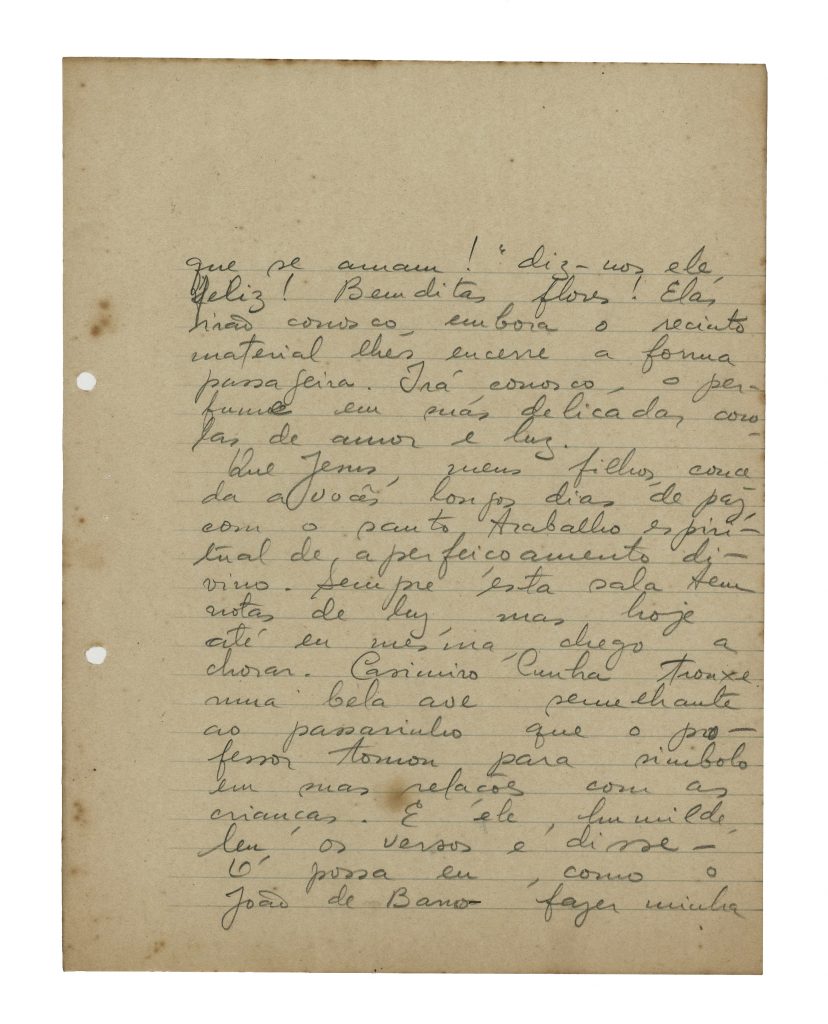 que se amam! " diz-nos ele,
feliz! Bemditas flores! Elas
irão conosco, embora o recinto
material lhes encerre a forma
passageira. Irá conosco, o per-
fume em suas delicadas coro-
las de amor e luz.
Que Jesus, meus filhos, conce
da a vocês longos dias de paz,
com o santo trabalho espiri-
tual de aperfeiçoamento di-
vino. Sempre esta sala tem
notas de luz mas hoje
até eu mesma, chego a
chorar. Casimiro Cunha trouxe
uma bela ave semelhante
ao passarinho que o pro-
fessor tomou para simbolo
em suas relações com as
crianças. E êle, humilde,
leu os versos e disse -
Ó, possa eu, como o
João de Barro fazer minha